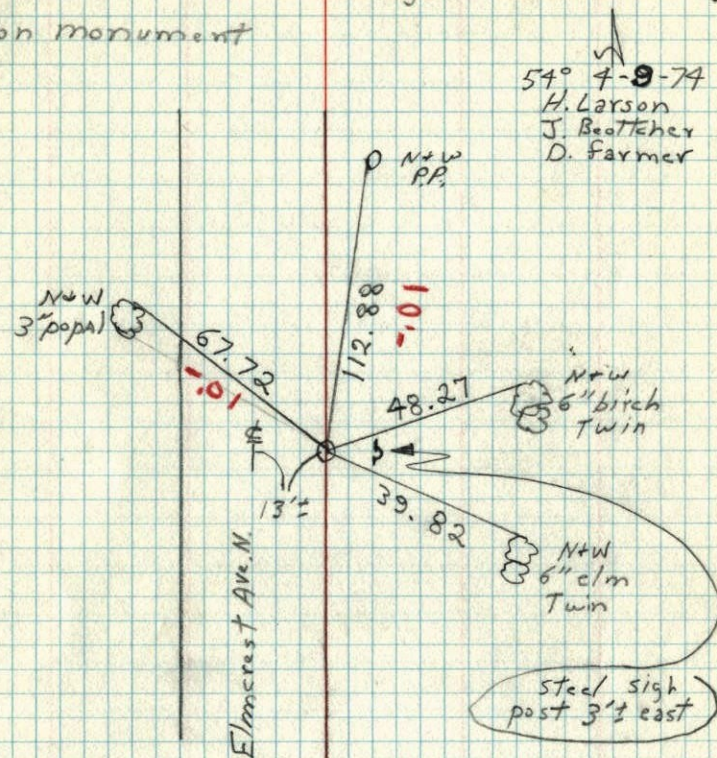 on monument
54° 4-9-74
H. Larson
J. Beottcher
D. Farmer
N+W
P.P.
N+W
3" popal
67.72
-.01
112.88
-.01
48.27
N+W
6" birch
Twin
℄
13'±
39.82
N+W
6" elm
Twin
Elmcrest Ave. N.
steel sigh
post 3'± east